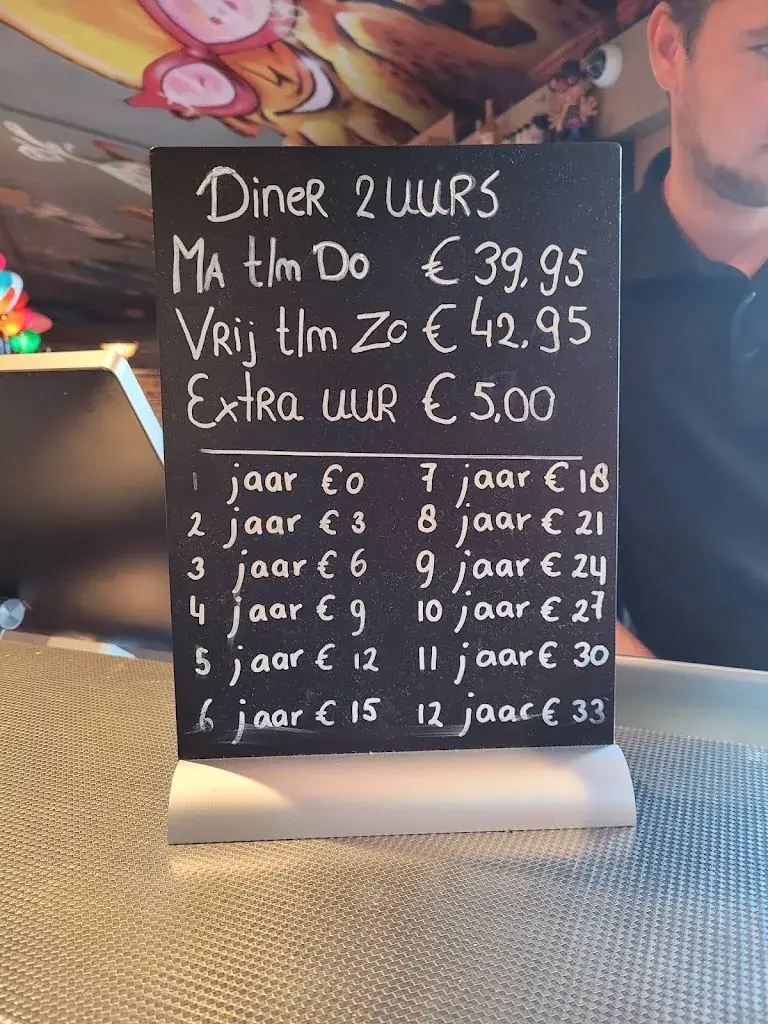 Diner 2 UURS
MA t/m Do € 39.95
Vrij t/m Zo € 42.95
Extra uur € 5.00
1 jaar €0 7 jaar € 18
2 jaar € 3 8 jaar € 21
3 jaar € 6 9 jaar € 24
4 jaar € 9 10 jaar € 27
5 jaar € 12 11 jaar € 30
6 jaar € 15 12 jaar € 33